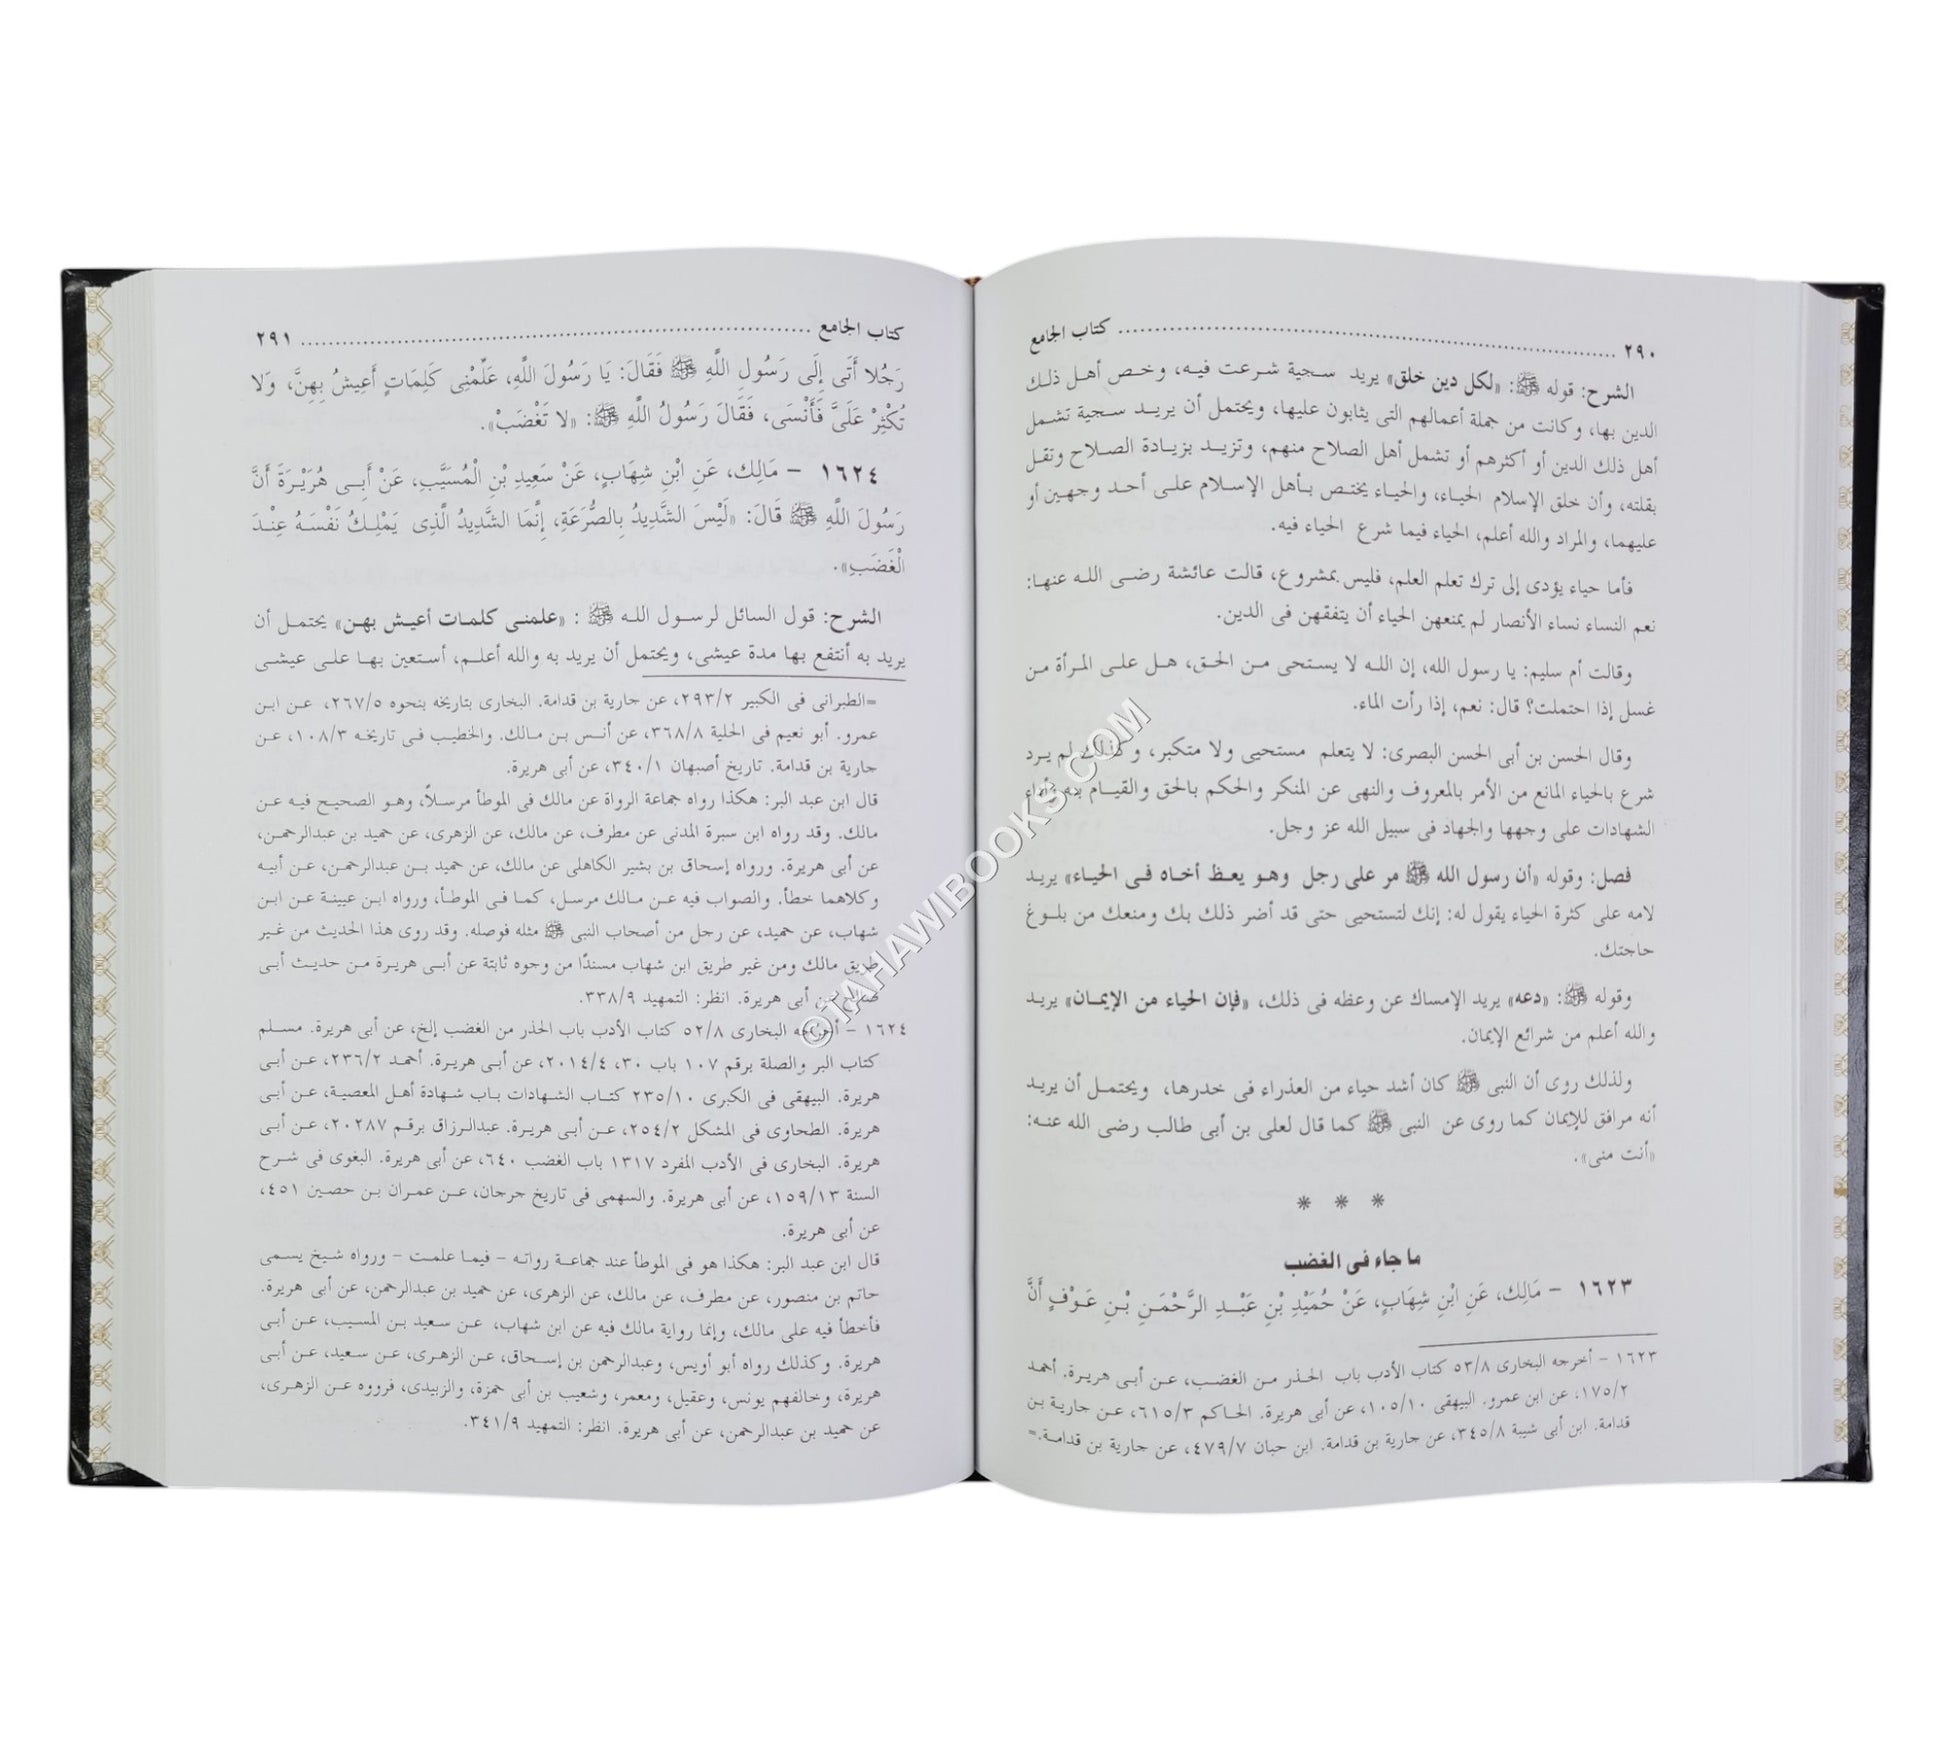 ٢٩٠ ........ كتاب الجامع
الشرح: قوله ﷺ: «لكل دين خلق» يريد سجية شرعت فيه، وخص أهل ذلك
الدين بها، وكانت من جملة أعمالهم التى يثابون عليها، ويحتمل أن يريد سجية تشمل
أهل ذلك الدين أو أكثرهم أو تشمل أهل الصلاح منهم، وتزيد بزيادة الصلاح وتقل
بقلته، وأن خلق الإسلام الحياء، والحياء يختص بأهل الإسلام على أحد وجهين أو
عليهما، والمراد والله أعلم، الحياء فيما شرع الحياء فيه.
فأما حياء يؤدى إلى ترك تعلم العلم، فليس بمشروع، قالت عائشة رضى الله عنها:
نعم النساء نساء الأنصار لم يمنعهن الحياء أن يتفقهن فى الدين.
وقالت أم سليم: يا رسول الله، إن الله لا يستحى من الحق، هل على المرأة من
غسل إذا احتملت؟ قال: نعم، إذا رأت الماء.
وقال الحسن بن أبى الحسن البصرى: لا يتعلم مستحيى ولا متكبر، وكذلك لم يرد
شرع بالحياء المانع من الأمر بالمعروف والنهى عن المنكر والحكم بالحق والقيام به وأداء
الشهادات على وجهها والجهاد فى سبيل الله عز وجل.
فصل: وقوله «أن رسول الله ﷺ مر على رجل وهو يعظ أخاه فى الحياء» يريد
لامه على كثرة الحياء يقول له: إنك لتستحيى حتى قد أضر ذلك بك ومنعك من بلوغ
حاجتك.
وقوله ﷺ: «دعه» يريد الإمساك عن وعظه فى ذلك، «فإن الحياء من الإيمان» يريد
والله أعلم من شرائع الإيمان.
ولذلك روى أن النبى ﷺ كان أشد حياء من العذراء فى خدرها، ويحتمل أن يريد
أنه مرافق للإيمان كما روى عن النبى ﷺ كما قال لعلى بن أبى طالب رضى الله عنه:
«أنت منى».
* * *
ما جاء فى الغضب
١٦٢٣ – مَالِك، عَنِ ابْنِ شِهَابٍ، عَنْ حُمَيْدِ بْنِ عَبْدِ الرَّحْمَنِ بْنِ عَوْفٍ أَنَّ
١٦٢٣ – أخرجه البخارى ٥٣/٨ كتاب الأدب باب الحذر من الغضب، عن أبى هريرة. أحمد
١٧٥/٢، عن ابن عمرو. البيهقى ١٠٥/١٠، عن أبى هريرة. الحاكم ٦١٥/٣، عن جارية بن
قدامة. ابن أبى شيبة ٣٤٥/٨، عن جارية بن قدامة. ابن حبان ٤٧٩/٧، عن جارية بن قدامة.=
كتاب الجامع ........ ٢٩١
رَجُلا أَتَى إِلَى رَسُولِ اللَّهِ ﷺ فَقَالَ: يَا رَسُولَ اللَّهِ، عَلِّمْنِى كَلِمَاتٍ أَعِيشُ بِهِنَّ، وَلا
تُكْثِرْ عَلَىَّ فَأَنْسَى، فَقَالَ رَسُولُ اللَّهِ ﷺ: «لا تَغْضَبْ».
١٦٢٤ – مَالِك، عَنِ ابْنِ شِهَابٍ، عَنْ سَعِيدِ بْنِ الْمُسَيَّبِ، عَنْ أَبِى هُرَيْرَةَ أَنَّ
رَسُولَ اللَّهِ ﷺ قَالَ: «لَيْسَ الشَّدِيدُ بِالصُّرَعَةِ، إِنَّمَا الشَّدِيدُ الَّذِى يَمْلِكُ نَفْسَهُ عِنْدَ
الْغَضَبِ».
الشرح: قول السائل لرسول الله ﷺ : «علمنى كلمات أعيش بهن» يحتمل أن
يريد به أنتفع بها مدة عيشى، ويحتمل أن يريد به والله أعلم، أستعين بها على عيشى
=الطبرانى فى الكبير ٢٩٣/٢، عن جارية بن قدامة. البخارى بتاريخه بنحوه ٢٦٧/٥، عن ابن
عمرو. أبو نعيم فى الحلية ٣٦٨/٨، عن أنس بن مالك. والخطيب فى تاريخه ١٠٨/٣، عن
جارية بن قدامة. تاريخ أصبهان ٣٤٠/١، عن أبى هريرة.
قال ابن عبد البر: هكذا رواه جماعة الرواة عن مالك فى الموطأ مرسلاً، وهو الصحيح فيه عن
مالك. وقد رواه ابن سبرة المدنى عن مطرف، عن مالك، عن الزهرى، عن حميد بن عبدالرحمن،
عن أبى هريرة. ورواه إسحاق بن بشير الكاهلى عن مالك، عن حميد بن عبدالرحمن، عن أبيه
وكلاهما خطأ. والصواب فيه عن مالك مرسل، كما فى الموطأ، ورواه ابن عيينة عن ابن
شهاب، عن حميد، عن رجل من أصحاب النبى ﷺ مثله فوصله. وقد روى هذا الحديث من غير
طريق مالك ومن غير طريق ابن شهاب مسندًا من وجوه ثابتة عن أبى هريرة من حديث أبى
صالح عن أبى هريرة. انظر: التمهيد ٣٣٨/٩.
١٦٢٤ – أخرجه البخارى ٥٢/٨ كتاب الأدب باب الحذر من الغضب إلخ، عن أبى هريرة. مسلم
كتاب البر والصلة برقم ١٠٧ باب ٣٠، ٢٠١٤/٤، عن أبى هريرة. أحمد ٢٣٦/٢، عن أبى
هريرة. البيهقى فى الكبرى ٢٣٥/١٠ كتاب الشهادات باب شهادة أهل المعصية، عن أبى
هريرة. الطحاوى فى المشكل ٢٥٤/٢، عن أبى هريرة. عبدالرزاق برقم ٢٠٢٨٧، عن أبى
هريرة. البخارى فى الأدب المفرد ١٣١٧ باب الغضب ٦٤٠، عن أبى هريرة. البغوى فى شرح
السنة ١٥٩/١٣، عن أبى هريرة. والسهمى فى تاريخ جرجان، عن عمران بن حصين ٤٥١،
عن أبى هريرة.
قال ابن عبد البر: هكذا هو فى الموطأ عند جماعة رواته – فيما علمت – ورواه شيخ يسمى
حاتم بن منصور، عن مطرف، عن مالك، عن الزهرى، عن حميد بن عبدالرحمن، عن أبى هريرة.
فأخطأ فيه على مالك، وإنما رواية مالك فيه عن ابن شهاب، عن سعيد بن المسيب، عن أبى
هريرة. وكذلك رواه أبو أويس، وعبدالرحمن بن إسحاق، عن الزهرى، عن سعيد، عن أبى
هريرة، وخالفهم يونس، وعقيل، ومعمر، وشعيب بن أبى حمزة، والزبيدى، فرووه عن الزهرى،
عن حميد بن عبدالرحمن، عن أبى هريرة. انظر: التمهيد ٣٤١/٩.
©TAHAWIBOOKS.COM